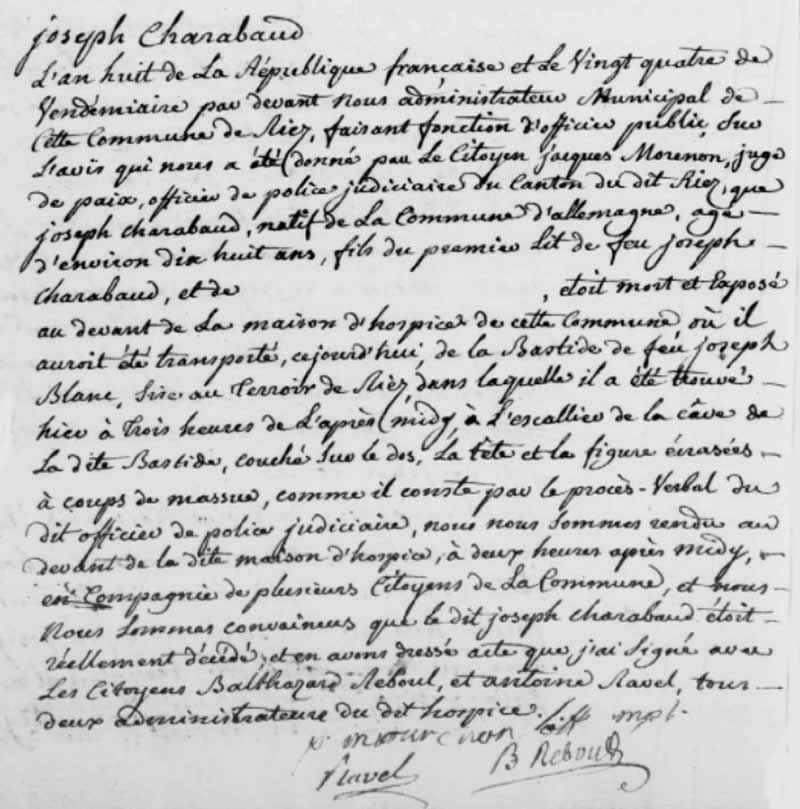 joseph Charabaud
L'an huit de La République française et Le Vingt quatre de
Vendemiaire par devant Nous administrateur Municipal de
Cette Commune de Riez, faisant fonction d'officier public, Sur
L'avis qui nous a été donné par Le Citoyen jacques Morenon, juge
de paix, officier de police judiciaire du Canton du dit Riez, que
joseph charabaud, natif de La Commune d'allemagne, agé
d'environ dix huit ans, fils du premier Lit de feu joseph
Charabaud, et de , etoit mort et Exposé
au devant de La maison d'hospice de cette Commune où il
auroit été transporté, cejourd'hui, de la Bastide de feu joseph
Blanc, Sise au Terroir de Riez dans laquelle il a été trouvé
hier à Trois heures de L'après midy, à L'escallier de la câve de
La dite Bastide, couché Sur le dos, La tête et la figure écrasées
à coups de massue, comme il conste par le procès-Verbal du
dit officier de police judiciaire, nous nous Sommes rendu au
devant de la dite maison d'hospice, à deux heures après midy,
en Compagnie de plusieurs Citoyens de La Commune, et nous
Nous Sommes convaincus que le dit joseph charabaud étoit
réellement décédé, et en avons dressé acte que j'ai Signé avec
Les Citoyens Balthazard Reboul, et antoine Ravel, tous
deux administrateurs du dit hospice.
off mpl.
Ravel B Reboul